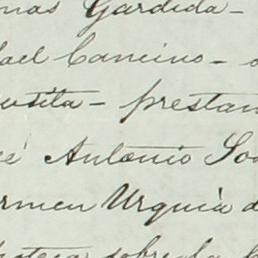 nas Gardida -
ael Cancino -
usita - prestan
é Antonio So
rmen Urquia d
hoteca sobre la